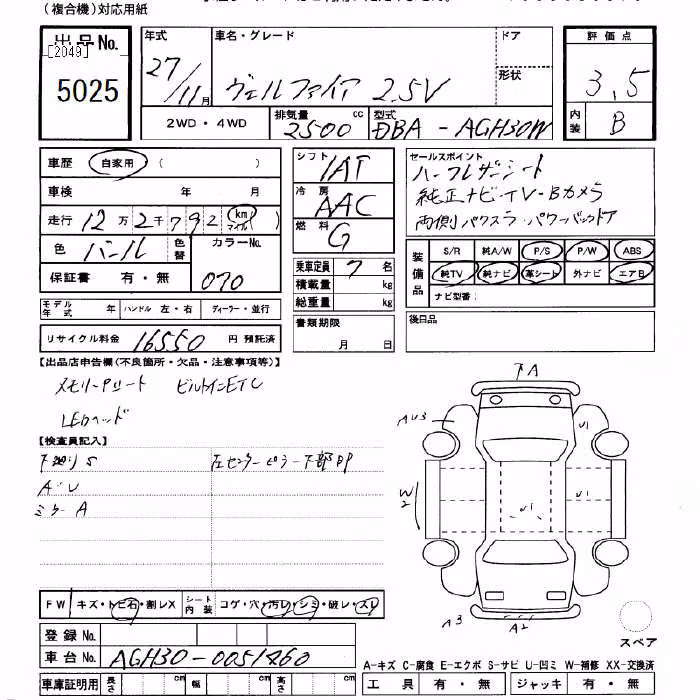 (複合機)対応用紙
出品No.
[2049]
5025
年式
27/11月
車名・グレード
ヴェルファイア 2.5V
ドア
形状
評価点
3.5
内装
B
2WD・4WD
排気量
2500 cc
型式
DBA-AGH30W
車歴
自家用 ( )
車検 年 月
走行 12万2千792 km マイル ( )
色 パール
色替
カラーNo.
070
保証書 有・無
シフト
IAT
冷房
AAC
燃料
G
乗車定員 7 名
積載量 kg
総重量 kg
セールスポイント
ハーフレザーシート
純正ナビ・TV・Bカメラ
両側パワスラ・パワーバックドア
装備品
S/R 純A/W P/S P/W ABS
純TV 純ナビ 革シート 外ナビ エアB
ナビ型番:
モデル年式 年 ハンドル 左・右 ディーラー・並行
リサイクル料金 16550 円 預託済
書類期限
月 日
後日品
【出品店申告欄(不良箇所・欠品・注意事項等)】
ビルトインETC
LEDヘッド
【検査員記入】
下廻りS
左センターピラー下部凹
A・U
ミラーA
A
AU3
U1
W2
U1
U1
A3
A2
スペア
FW キズ・トビ石・割レX
シート内装 コゲ・穴・汚レ・シミ・破レ・スレ
登録No.
車台No. AGH30-0051460
車庫証明用 長さ cm 幅 cm 高さ cm
A-キズ C-腐食 E-エクボ S-サビ U-凹ミ W-補修 XX-交換済
工具 有・無 ジャッキ 有・無